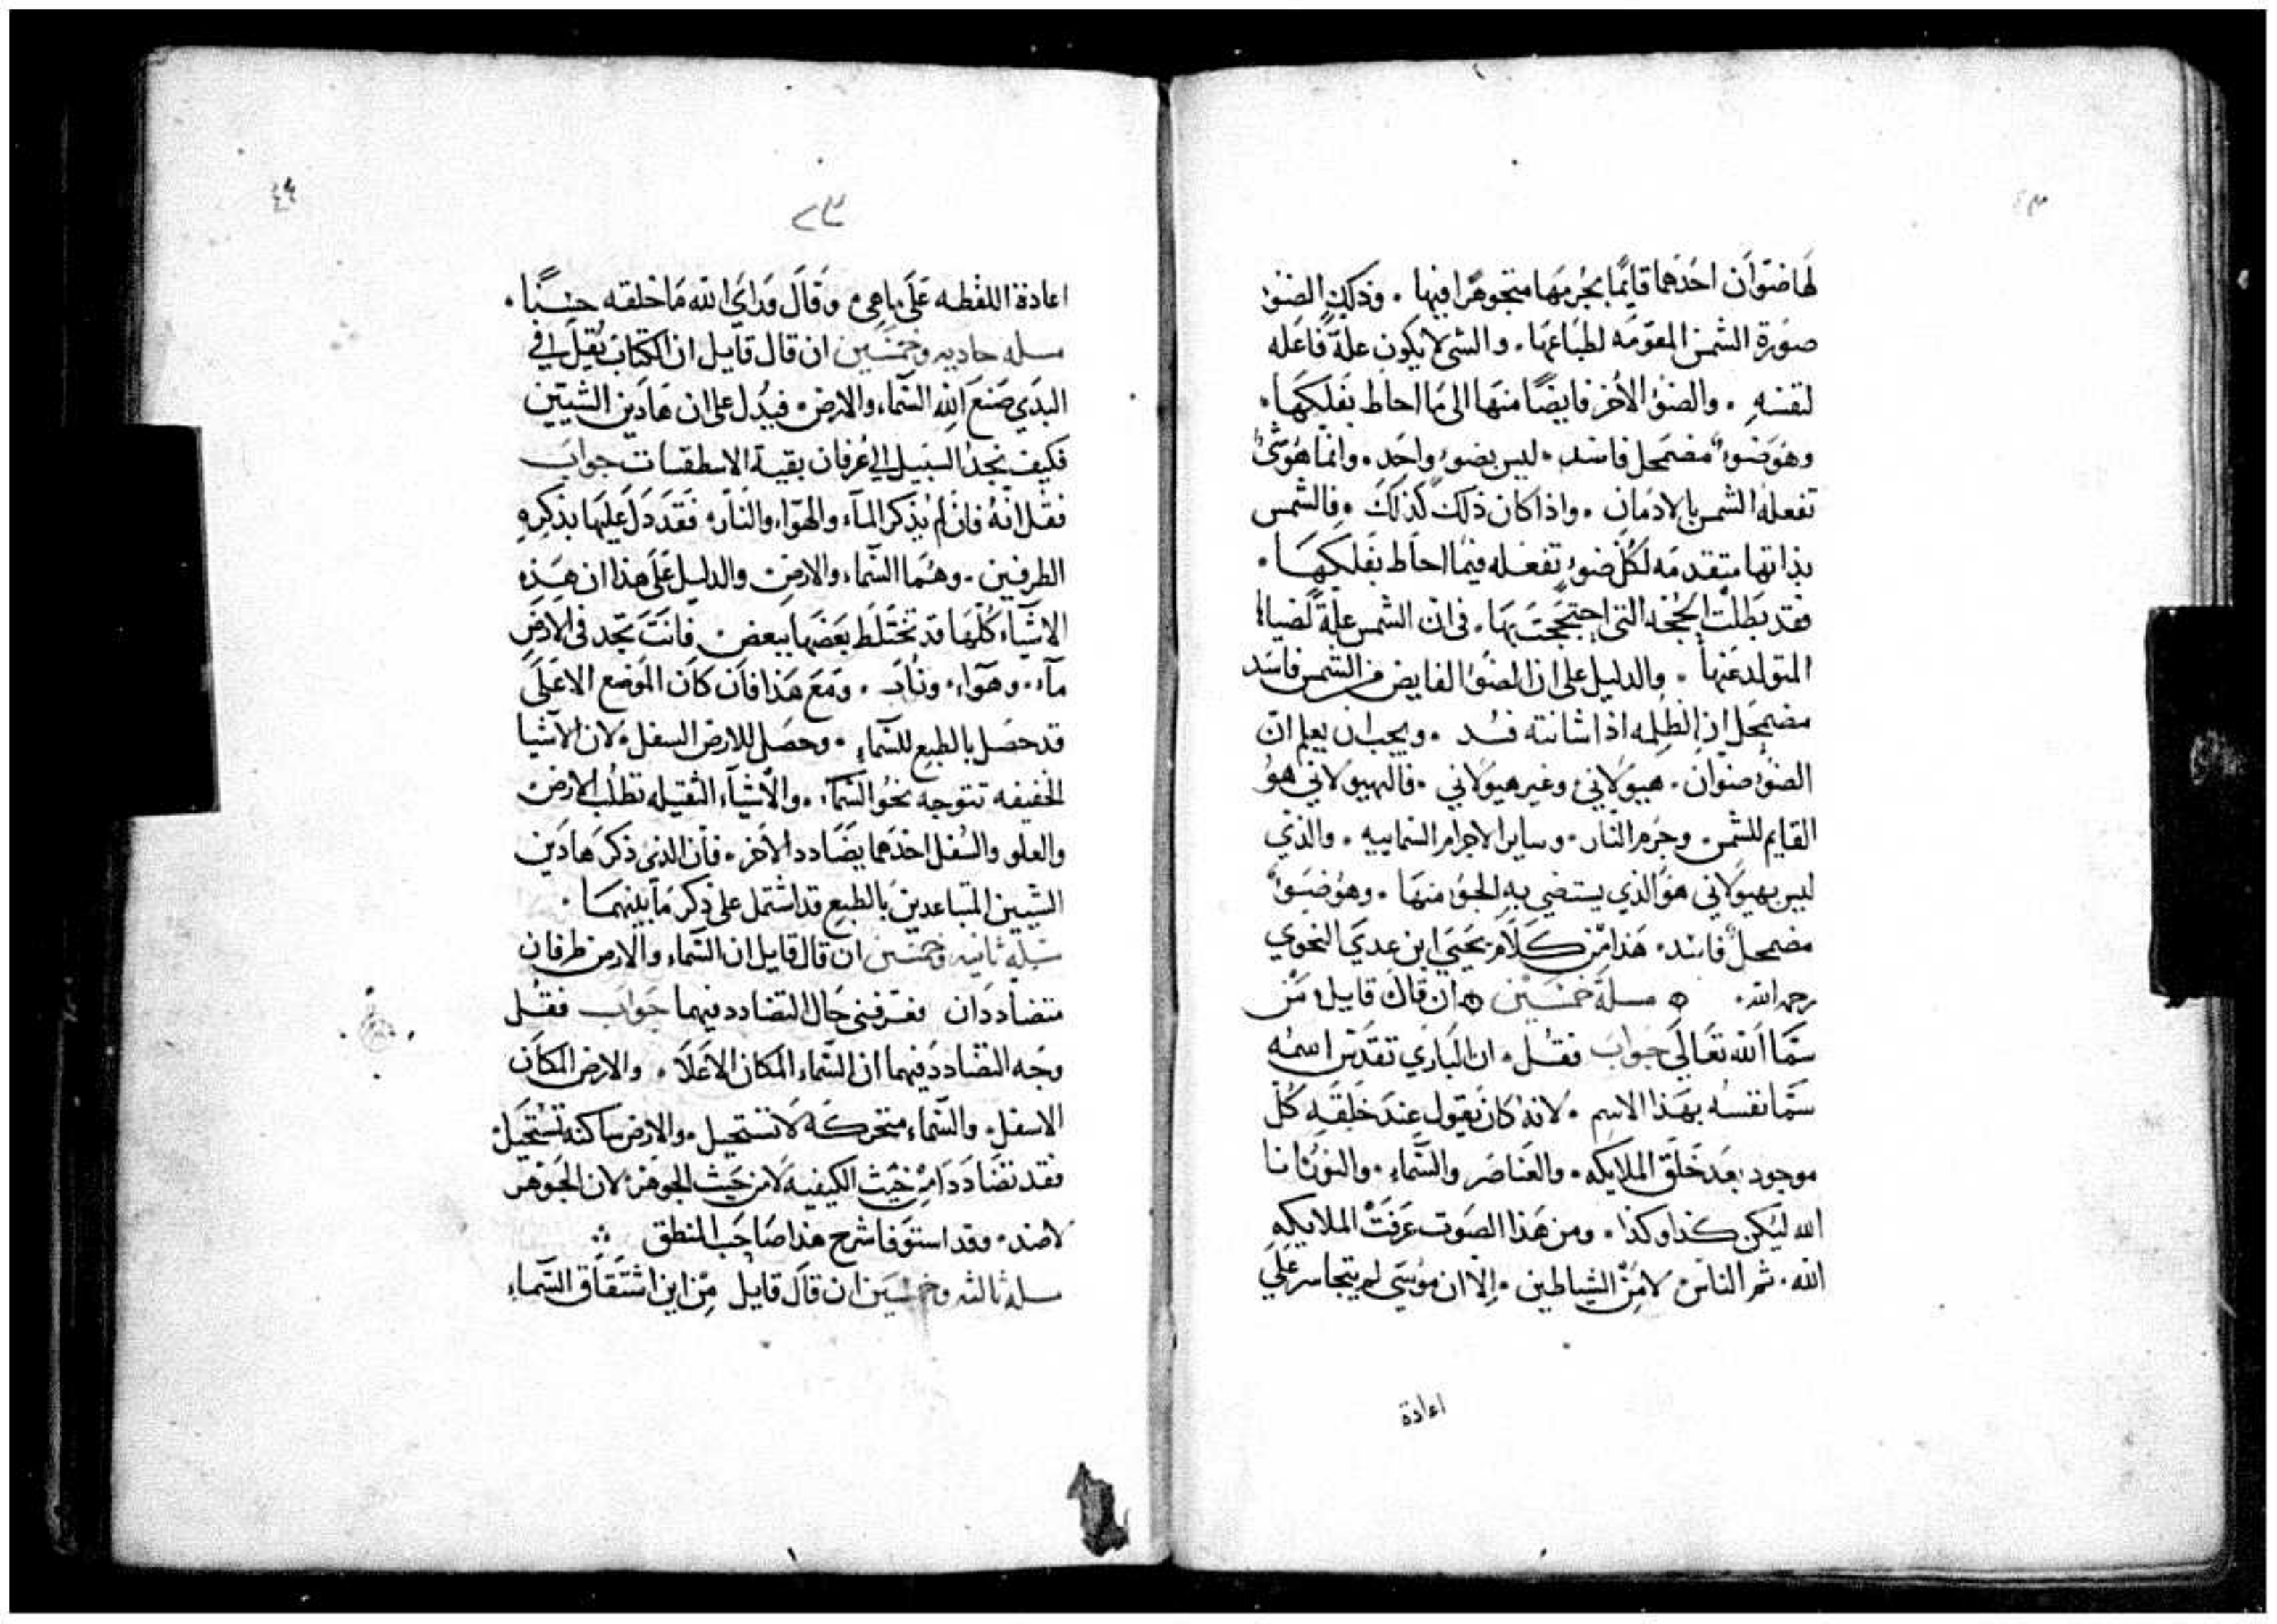 لها ضوآن احدهما قايمًا بجرمها متجوهرًا فيها . وذلك الضوء
صورة الشمس المقومه لطباعها . والشي لا يكون علةً فاعله
لنفسه . والضوء الاخر فايضًا منها الى ما احاط بفلكها .
وهو ضوء مضمحل فاسد . ليس بضوء واحد . وانما هو شيء
تفعله الشمس بالادمان . واذا كان ذلك كذلك . فالشمس
بذاتها متقدمه لكل ضوء تفعله فيما احاط بفلكها .
فقد بطلت الحجه التي احتججت بها . في ان الشمس علة لضياها
المتولد عنها . والدليل على ان الضوء الفايض من الشمس فاسد
مضمحل ان الظلمه اذا شانته فسد . ويجب ان يعلم ان
الضوء ضوان . هيولاني وغير هيولاني . فالهيولاني هو
القايم للشمس . وجرم النار . وساير الاجرام السماييه . والذي
ليس بهيولاني هو الذي يستضي به الجو منها . وهو ضوء
مضمحل فاسد . هذا من كلام يحيى ابن عدي النحوي
رحمه الله . مسلة خمسين ان قال قايل من
سما الله تعالى جواب فقل . ان الباري تقدس اسمه
سما نفسه بهذا الاسم . لانه كان يقول عند خلقه كل
موجود بعد خلق الملايكه . والعناصر والسماء . والنور انا
الله ليكن كذا وكذا . ومن هذا الصوت عرفت الملايكه
الله . ثم الناس لا من الشياطين . الا ان موسى لم يتجاسر على
اعادة
٤٤
اعادة اللفظه على ما هي وقال وراى الله ما خلقه حسنًا .
مسله حاديه وخمسين ان قال قايل ان الكتاب يقل في
البدي صنع الله السماء والارض . فيدل على ان هادين الشيين
فكيف نجد السبيل الى عرفان بقية الاسطقسات جواب
فقل انه فان لم يذكر الماء والهواء والنار . فقد دل عليها بذكره
الطرفين . وهما السماء والارض والدليل على هذا ان هذه
الاشياء كلها قد تختلط بعضها ببعض . فانت تجد في الارض
ماء . وهواء . ونار . ومع هذا فان كان الموضع الاعلى
قد حصل بالطبع للسماء . وحصل للارض السفل . لان الاشيا
الخفيفه تتوجه نحو السماء . والاشياء الثقيله تطلب الارض
والعلو والسفل احدهما يضادد الاخر . فان الذي ذكر هادين
الشيين المتباعدين بالطبع قد اشتمل على ذكر ما بينهما .
مسله ثانيه وخمسين ان قال قايل ان السماء والارض طرفان
متضاددان فعرفني حال التضادد فيهما جواب فقل
وجه التضادد فيهما ان السماء المكان الاعلا . والارض المكان
الاسفل . والسماء متحركة لا تستحيل . والارض ساكنه تستحيل
فقد تضاددا من حيث الكيفيه لا من حيث الجوهر لان الجوهر
لا ضد . وقد استوفا شرح هذا صاحب المنطق
مسله ثالثه وخمسين ان قال قايل من اين اشتقاق السماء